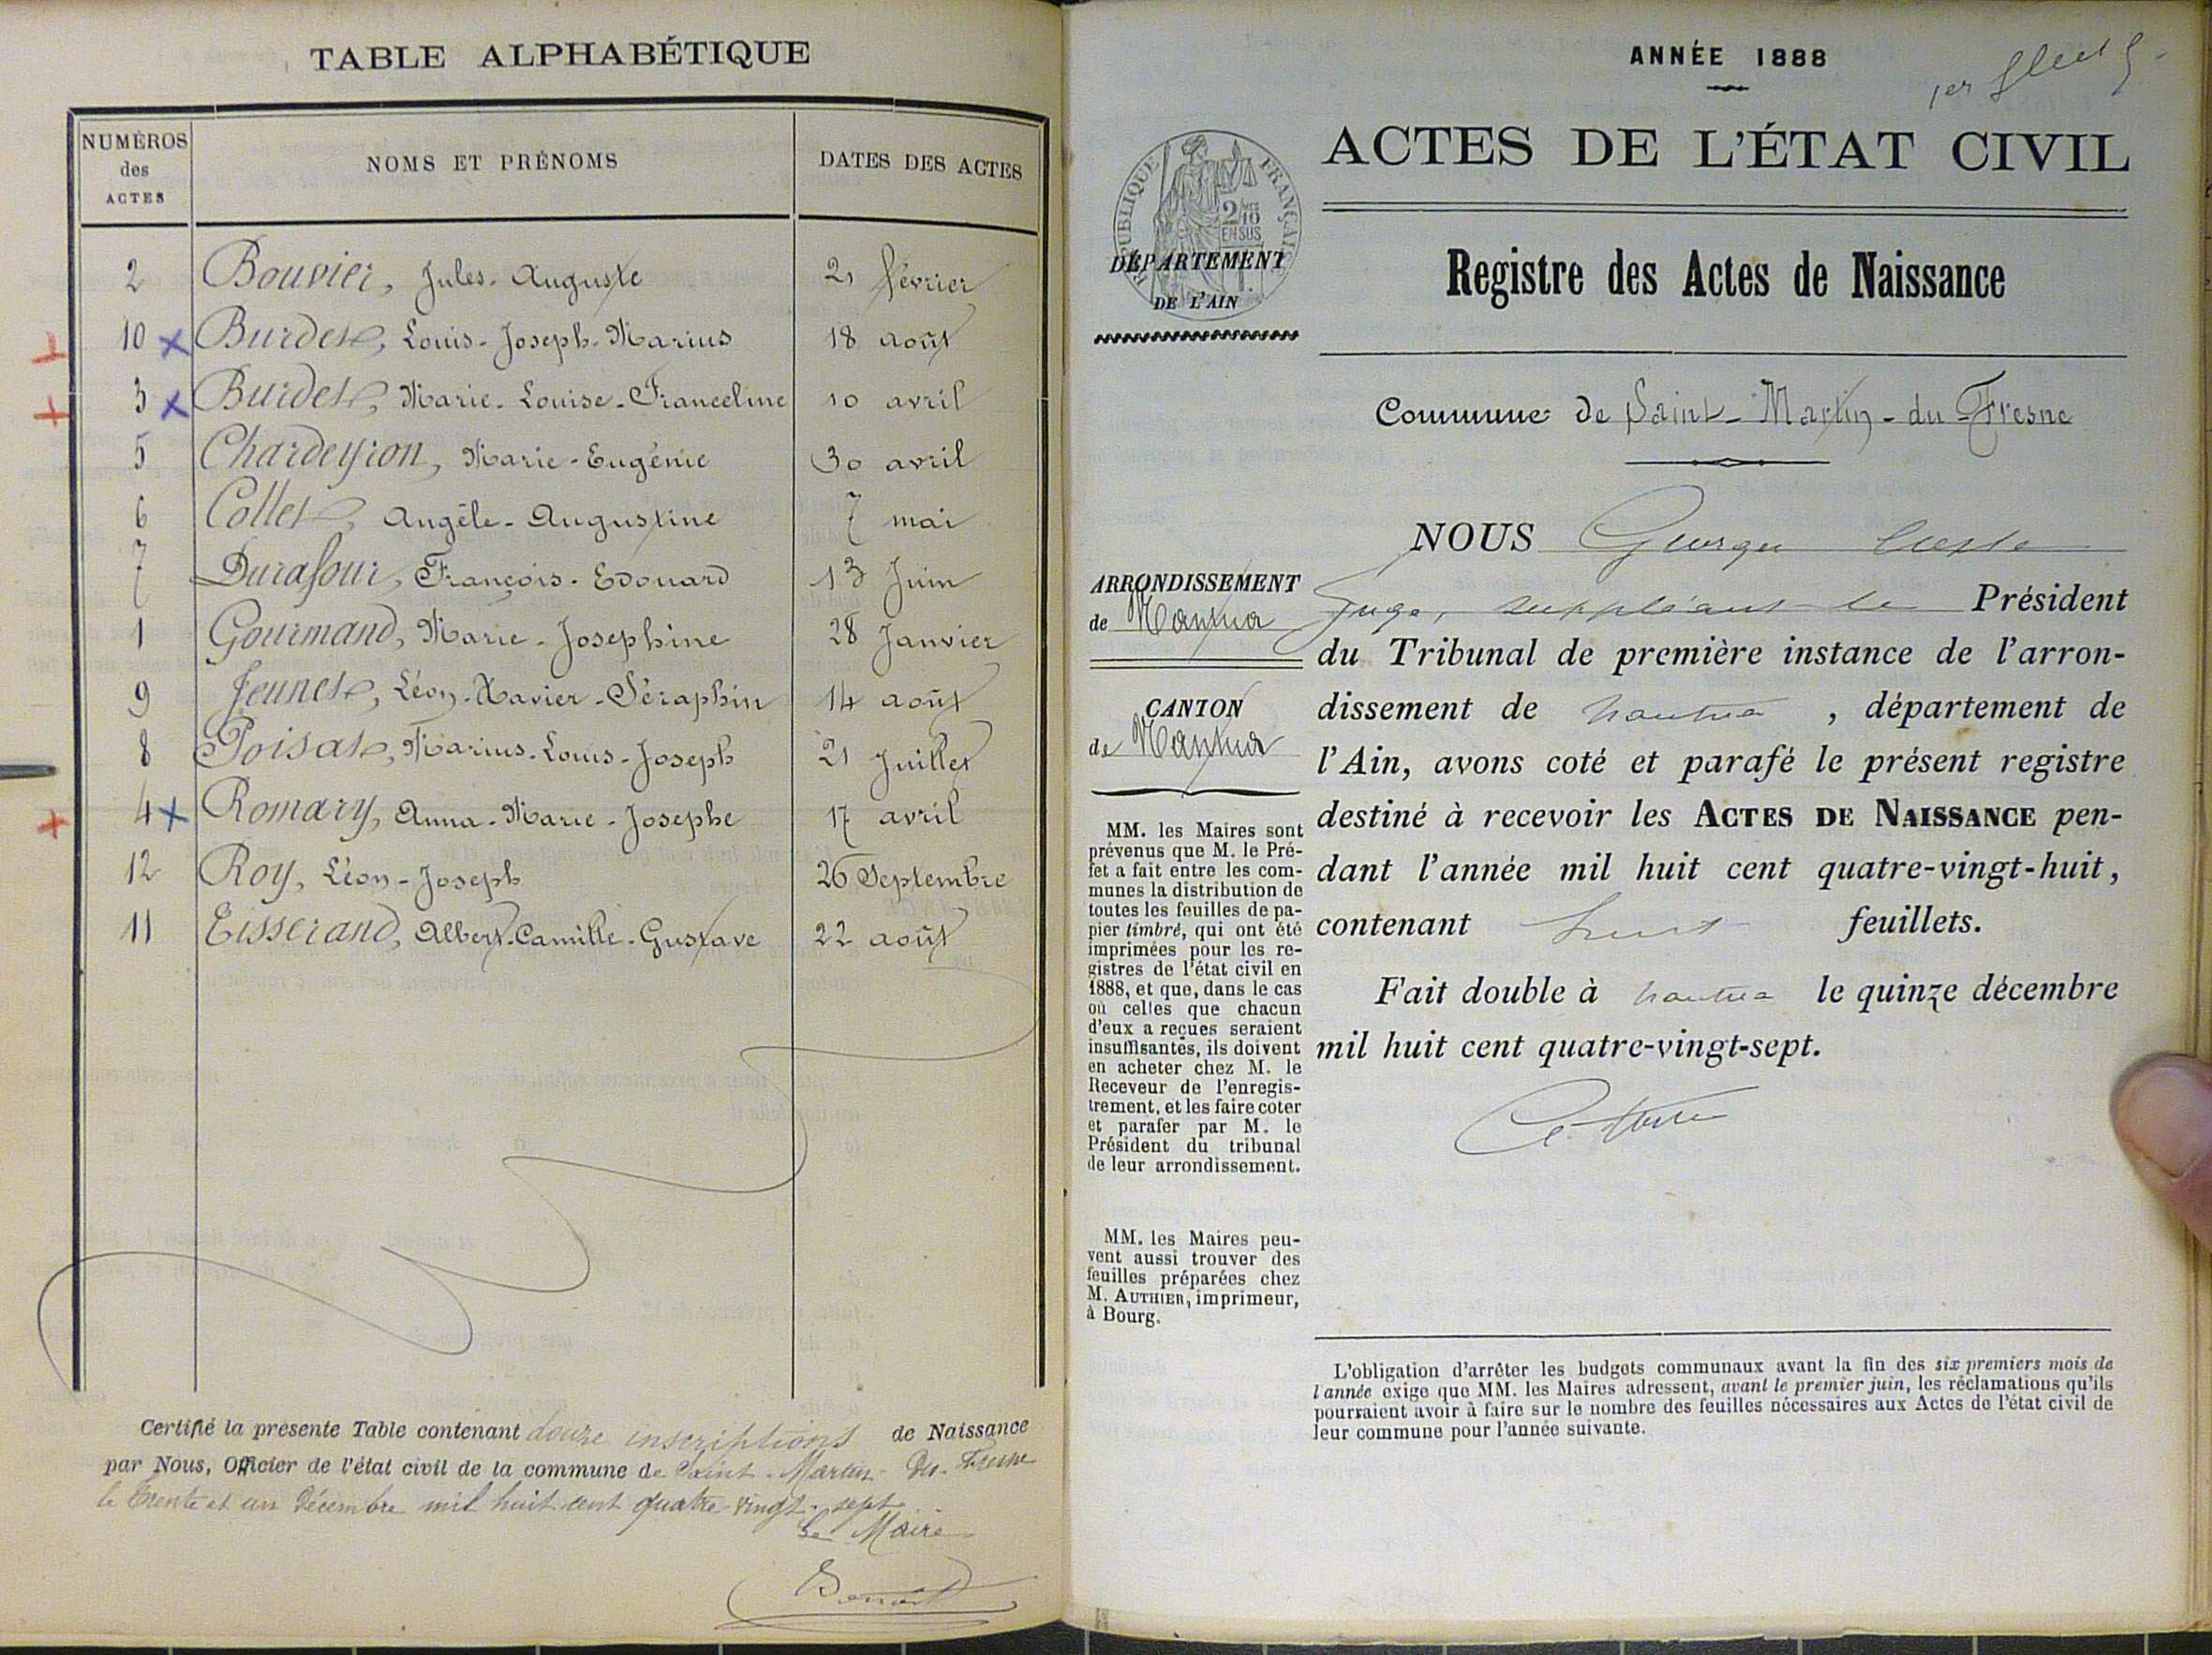 TABLE ALPHABÉTIQUE
NUMÉROS des ACTES
NOMS ET PRÉNOMS
DATES DES ACTES
2 Bouvier, Jules-Auguste 21 février
10 Burdet, Louis-Joseph-Marius 18 août
3 Burdet, Marie-Louise-Franceline 10 avril
5 Chardeyron, Marie-Eugénie 30 avril
6 Collet, Angèle-Augustine 7 mai
7 Durafour, François-Edouard 13 Juin
1 Gourmand, Marie-Josephine 28 Janvier
9 Jeunet, Léon-Xavier-Séraphin 14 août
8 Poisat, Marius-Louis-Joseph 21 Juillet
4 Romary, Anna-Marie-Josephe 17 avril
12 Roy, Léon-Joseph 26 Septembre
11 Tisserand, Albert-Camille-Gustave 22 août
Certifié la présente Table contenant douze inscriptions de Naissance
par Nous, Officier de l'état civil de la commune de Saint-Martin-du-Fresne
le trente et un Décembre mil huit cent quatre-vingt-sept.
Le Maire
Benoit
ANNÉE 1888
1er
ACTES DE L'ÉTAT CIVIL
RÉPUBLIQUE FRANÇAISE
2/10 EN SUS
DÉPARTEMENT
DE L'AIN
Registre des Actes de Naissance
Commune de Saint-Martin-du-Fresne
ARRONDISSEMENT
de Nantua
CANTON
de Nantua
MM. les Maires sont
prévenus que M. le Pré-
fet a fait entre les com-
munes la distribution de
toutes les feuilles de pa-
pier timbré, qui ont été
imprimées pour les re-
gistres de l'état civil en
1888, et que, dans le cas
où celles que chacun
d'eux a reçues seraient
insuffisantes, ils doivent
en acheter chez M. le
Receveur de l'enregis-
trement, et les faire coter
et parafer par M. le
Président du tribunal
de leur arrondissement.
MM. les Maires peu-
vent aussi trouver des
feuilles préparées chez
M. AUTHIER, imprimeur,
à Bourg.
NOUS Georges
Juge, suppléant le Président
du Tribunal de première instance de l'arron-
dissement de Nantua, département de
l'Ain, avons coté et parafé le présent registre
destiné à recevoir les ACTES DE NAISSANCE pen-
dant l'année mil huit cent quatre-vingt-huit,
contenant huit feuillets.
Fait double à Nantua le quinze décembre
mil huit cent quatre-vingt-sept.
L'obligation d'arrêter les budgets communaux avant la fin des six premiers mois de
l'année exige que MM. les Maires adressent, avant le premier juin, les réclamations qu'ils
pourraient avoir à faire sur le nombre des feuilles nécessaires aux Actes de l'état civil de
leur commune pour l'année suivante.